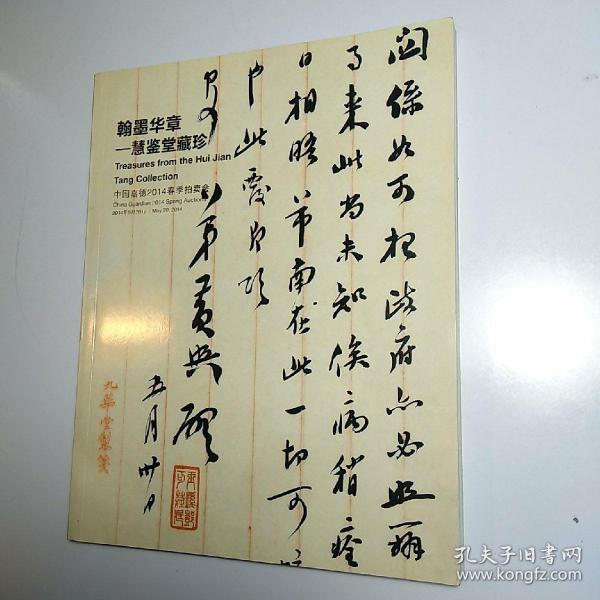 翰墨华章
—慧鉴堂藏珍
Treasures from the Hui Jian
Tang Collection
中国嘉德2014春季拍卖会
China Guardian 2014 Spring Auctions
May 20, 2014
关系如可抵政府亦必照办
来此尚未知俟病稍痊
日相晤弟南在此一切可
此覆即颂
弟黄兴顿
五月卅日
九华堂制笺
孔夫子旧书网
www.kongfz.com